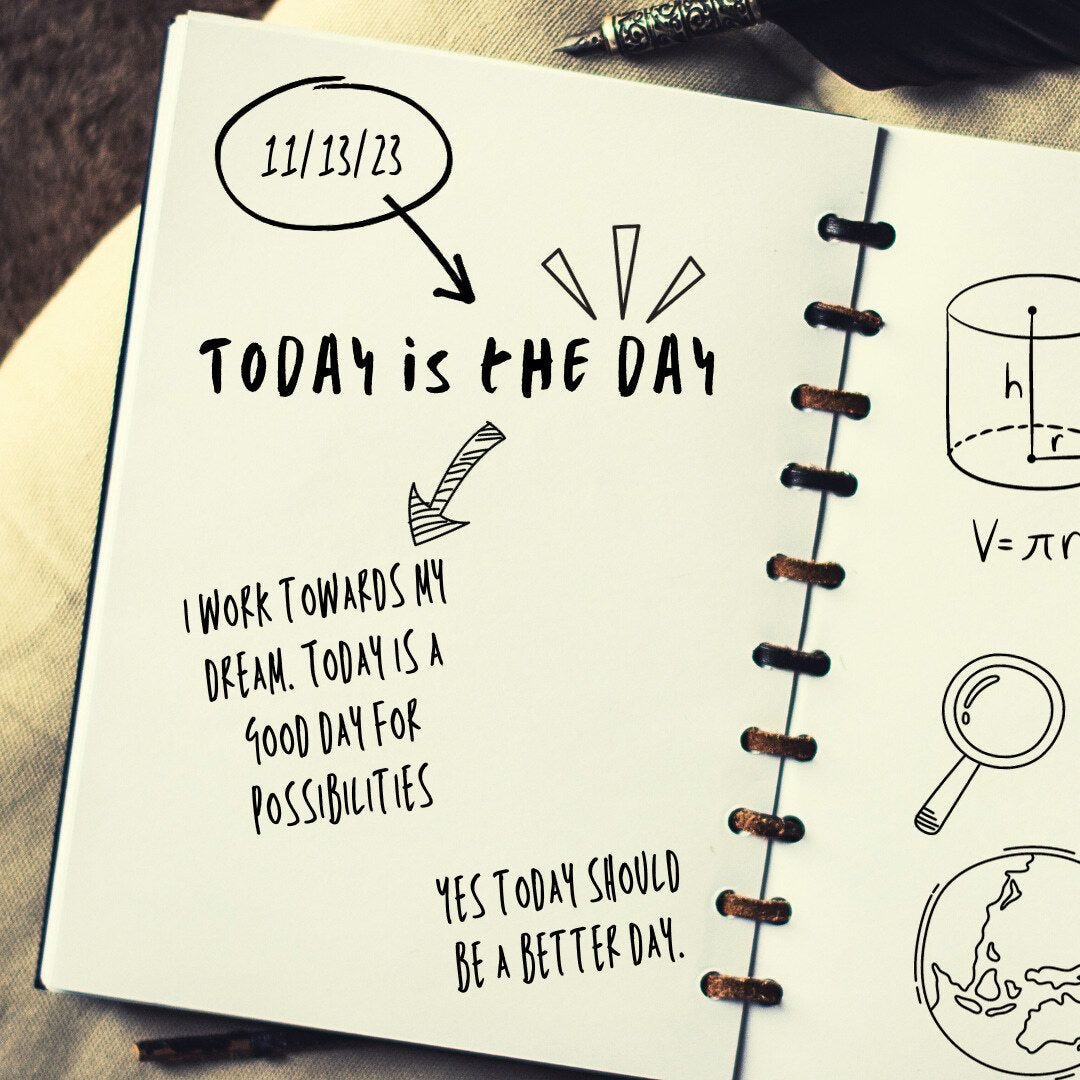 11/13/23
TODAY is tHE DAY
I WORK TOWARDS MY
DREAM. TODAY IS A
GOOD DAY FOR
POSSIBILITIES
YES TODAY SHOULD
BE A BETTER DAY.
h
r
V=πr